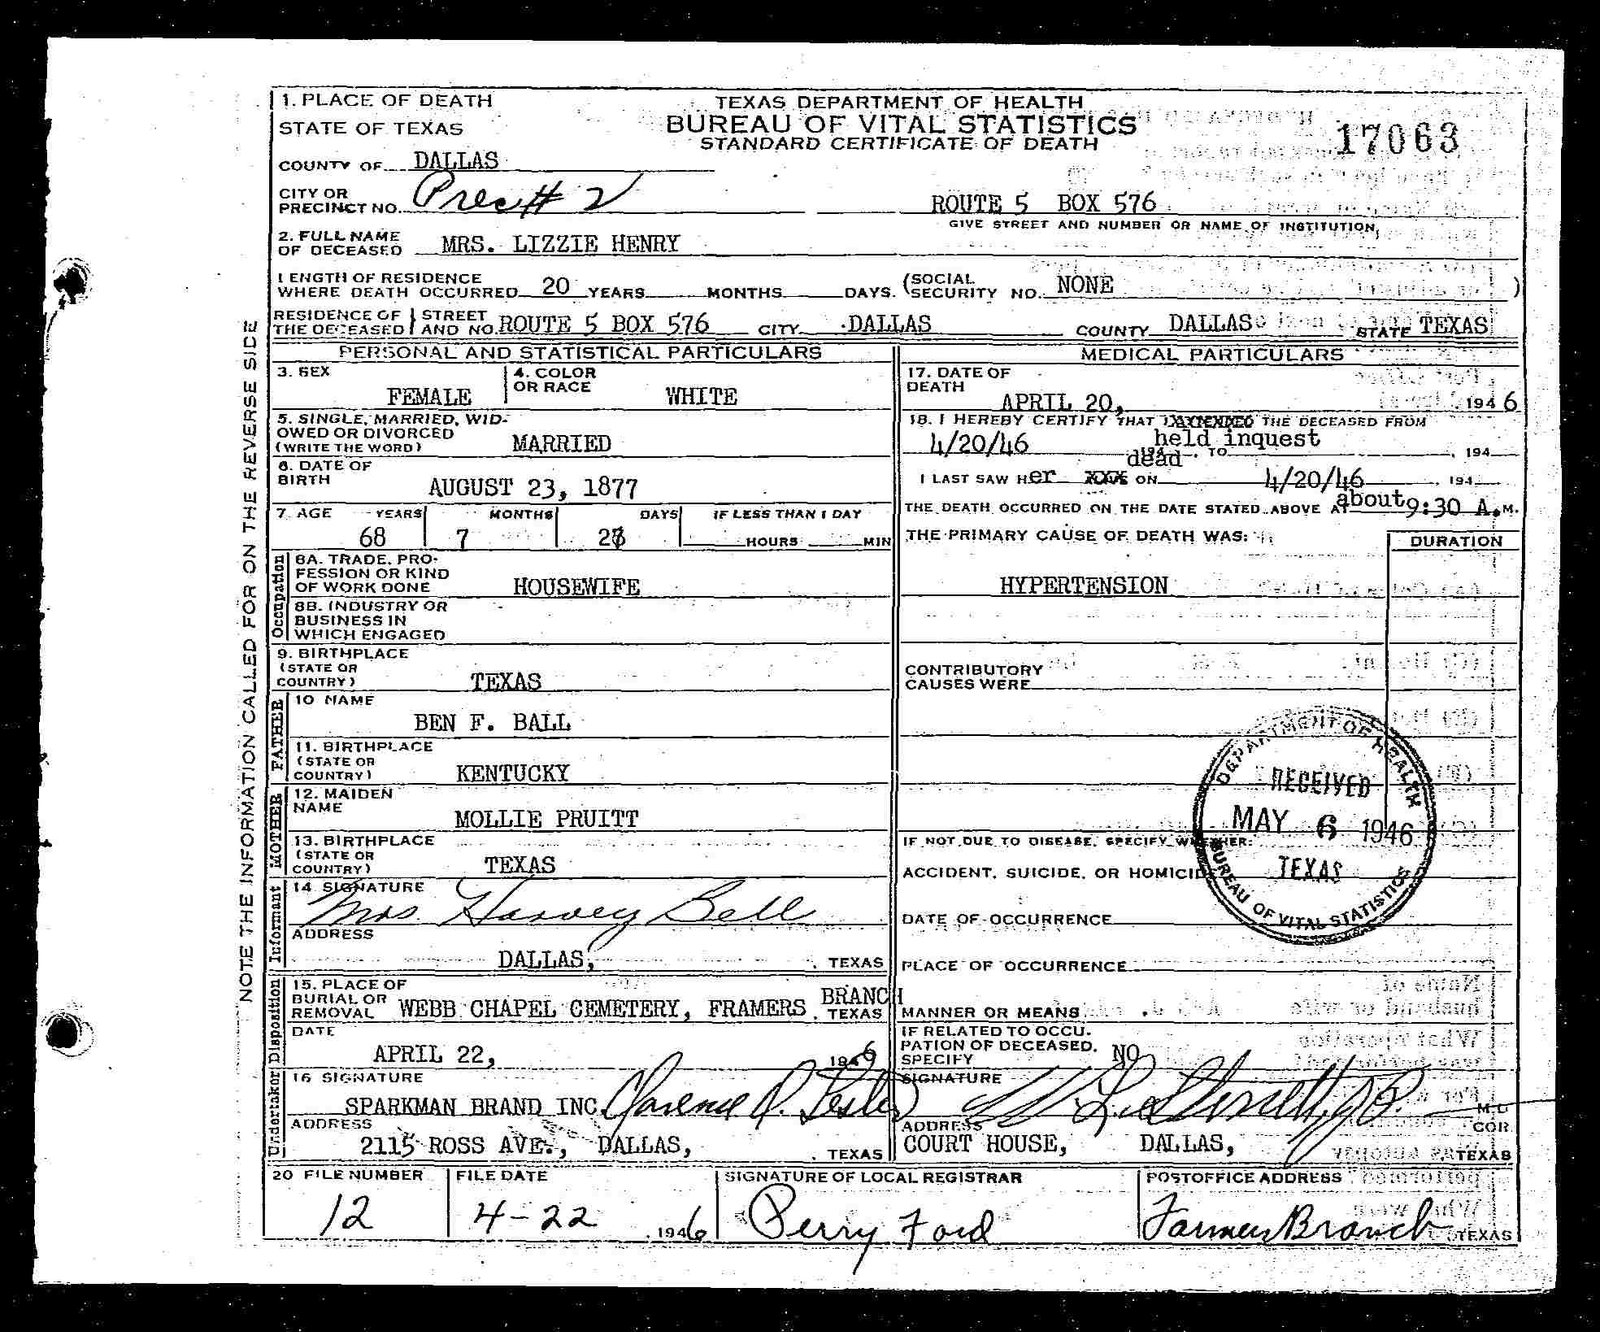 1. PLACE OF DEATH
STATE OF TEXAS
TEXAS DEPARTMENT OF HEALTH
BUREAU OF VITAL STATISTICS
STANDARD CERTIFICATE OF DEATH
17063
COUNTY OF DALLAS
CITY OR PRECINCT NO. Prec # 2
ROUTE 5 BOX 576
GIVE STREET AND NUMBER OR NAME OF INSTITUTION
2. FULL NAME OF DECEASED MRS. LIZZIE HENRY
LENGTH OF RESIDENCE WHERE DEATH OCCURRED 20 YEARS MONTHS DAYS. (SOCIAL SECURITY NO. NONE )
RESIDENCE OF THE DECEASED STREET AND NO. ROUTE 5 BOX 576 CITY DALLAS COUNTY DALLAS STATE TEXAS
PERSONAL AND STATISTICAL PARTICULARS
3. SEX FEMALE
4. COLOR OR RACE WHITE
5. SINGLE, MARRIED, WIDOWED OR DIVORCED (WRITE THE WORD) MARRIED
6. DATE OF BIRTH AUGUST 23, 1877
7 AGE YEARS MONTHS DAYS IF LESS THAN 1 DAY
68 7 HOURS MIN
Occupation
8A. TRADE, PROFESSION OR KIND OF WORK DONE HOUSEWIFE
8B. INDUSTRY OR BUSINESS IN WHICH ENGAGED
9. BIRTHPLACE (STATE OR COUNTRY) TEXAS
FATHER
10 NAME BEN F. BALL
11. BIRTHPLACE (STATE OR COUNTRY) KENTUCKY
MOTHER
12. MAIDEN NAME MOLLIE PRUITT
13. BIRTHPLACE (STATE OR COUNTRY) TEXAS
Informant
14 SIGNATURE Mrs. Harvey Bell
ADDRESS DALLAS, TEXAS
Disposition
15. PLACE OF BURIAL OR REMOVAL WEBB CHAPEL CEMETERY, FRAMERS BRANCH, TEXAS
DATE APRIL 22, 1946
Undertaker
16 SIGNATURE SPARKMAN BRAND INC. Clarence R. Lester
ADDRESS 2115 ROSS AVE., DALLAS, TEXAS
MEDICAL PARTICULARS
17. DATE OF DEATH APRIL 20, 1946
18. I HEREBY CERTIFY THAT I ATTENDED THE DECEASED FROM
4/20/46 held inquest 194 TO , 194
I LAST SAW Her dead ON 4/20/46 , 194
THE DEATH OCCURRED ON THE DATE STATED ABOVE AT about 9:30 A.M.
THE PRIMARY CAUSE OF DEATH WAS: DURATION
HYPERTENSION
CONTRIBUTORY CAUSES WERE
DEPARTMENT OF HEALTH
RECEIVED
MAY 6 1946
TEXAS
BUREAU OF VITAL STATISTICS
IF NOT DUE TO DISEASE, SPECIFY WHETHER:
ACCIDENT, SUICIDE, OR HOMICIDE
DATE OF OCCURRENCE
PLACE OF OCCURRENCE
MANNER OR MEANS
IF RELATED TO OCCUPATION OF DECEASED, SPECIFY NO
SIGNATURE M.D. COR.
ADDRESS COURT HOUSE, DALLAS, TEXAS
20 FILE NUMBER 12
FILE DATE 4-22 , 1946
SIGNATURE OF LOCAL REGISTRAR Perry Ford
POSTOFFICE ADDRESS Farmers Branch TEXAS
NOTE THE INFORMATION CALLED FOR ON THE REVERSE SIDE